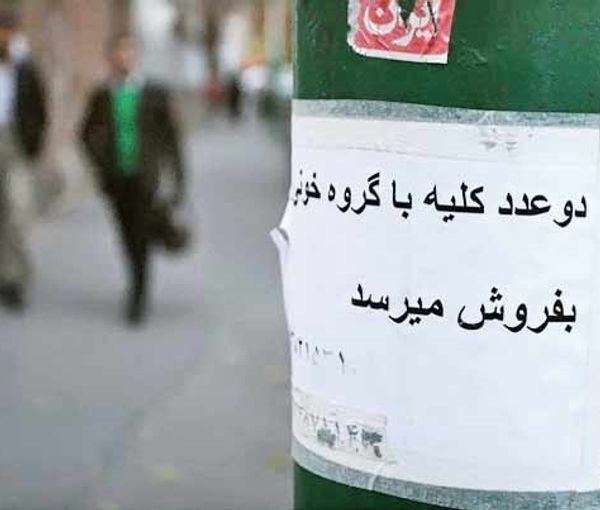 ایران
دو عدد کلیه با گروه خونی
بفروش میرسد